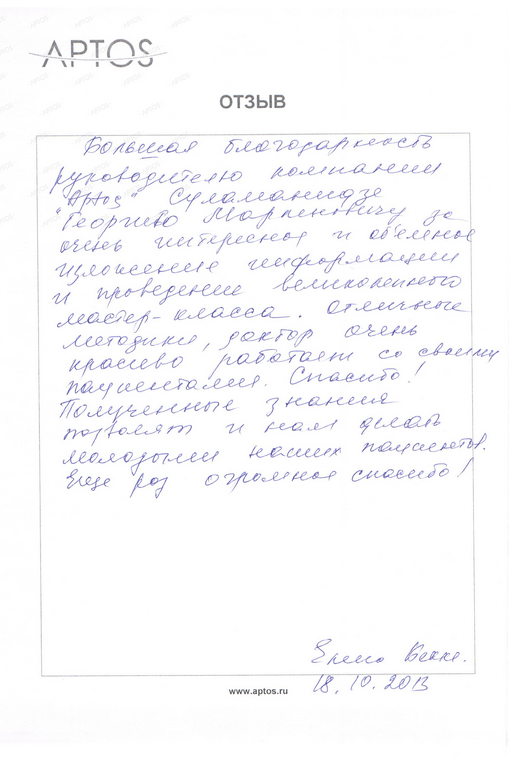 APTOS
ОТЗЫВ
Большая благодарность
руководителю компании
"Aptos" Суламанидзе
Георгию Марленовичу за
очень интересное и объемное
изложение информации
и проведение великолепного
мастер-класса. Отличные
методики, доктор очень
красиво работает со своими
пациентами. Спасибо!
Полученные знания
позволят и нам делать
молодыми наших пациентов.
Еще раз огромное спасибо!
Елена Бекке.
18.10.2013
www.aptos.ru